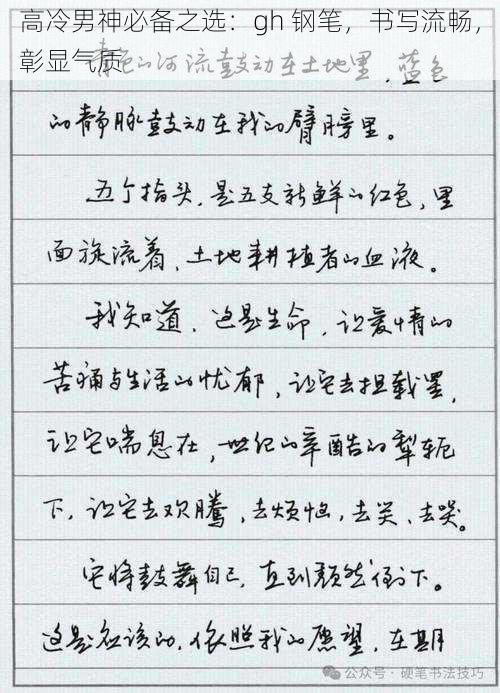 高冷男神必备之选：gh 钢笔，书写流畅，
彰显气质
青色的河流鼓动在土地里，蓝色
的静脉鼓动在我的臂膀里。
五个指头，是五支新鲜的红色，里
面旋流着，土地耕植者的血液。
我知道，这是生命，让爱情的
苦痛与生活的忧郁，让它去担载罢，
让它喘息在，世纪的辛酷的犁轭
下，让它去欢腾，去烦恼，去笑，去哭。
它将鼓舞自己，直到颓然倒下。
这是应该的，依照我的愿望，在期
公众号·硬笔书法技巧